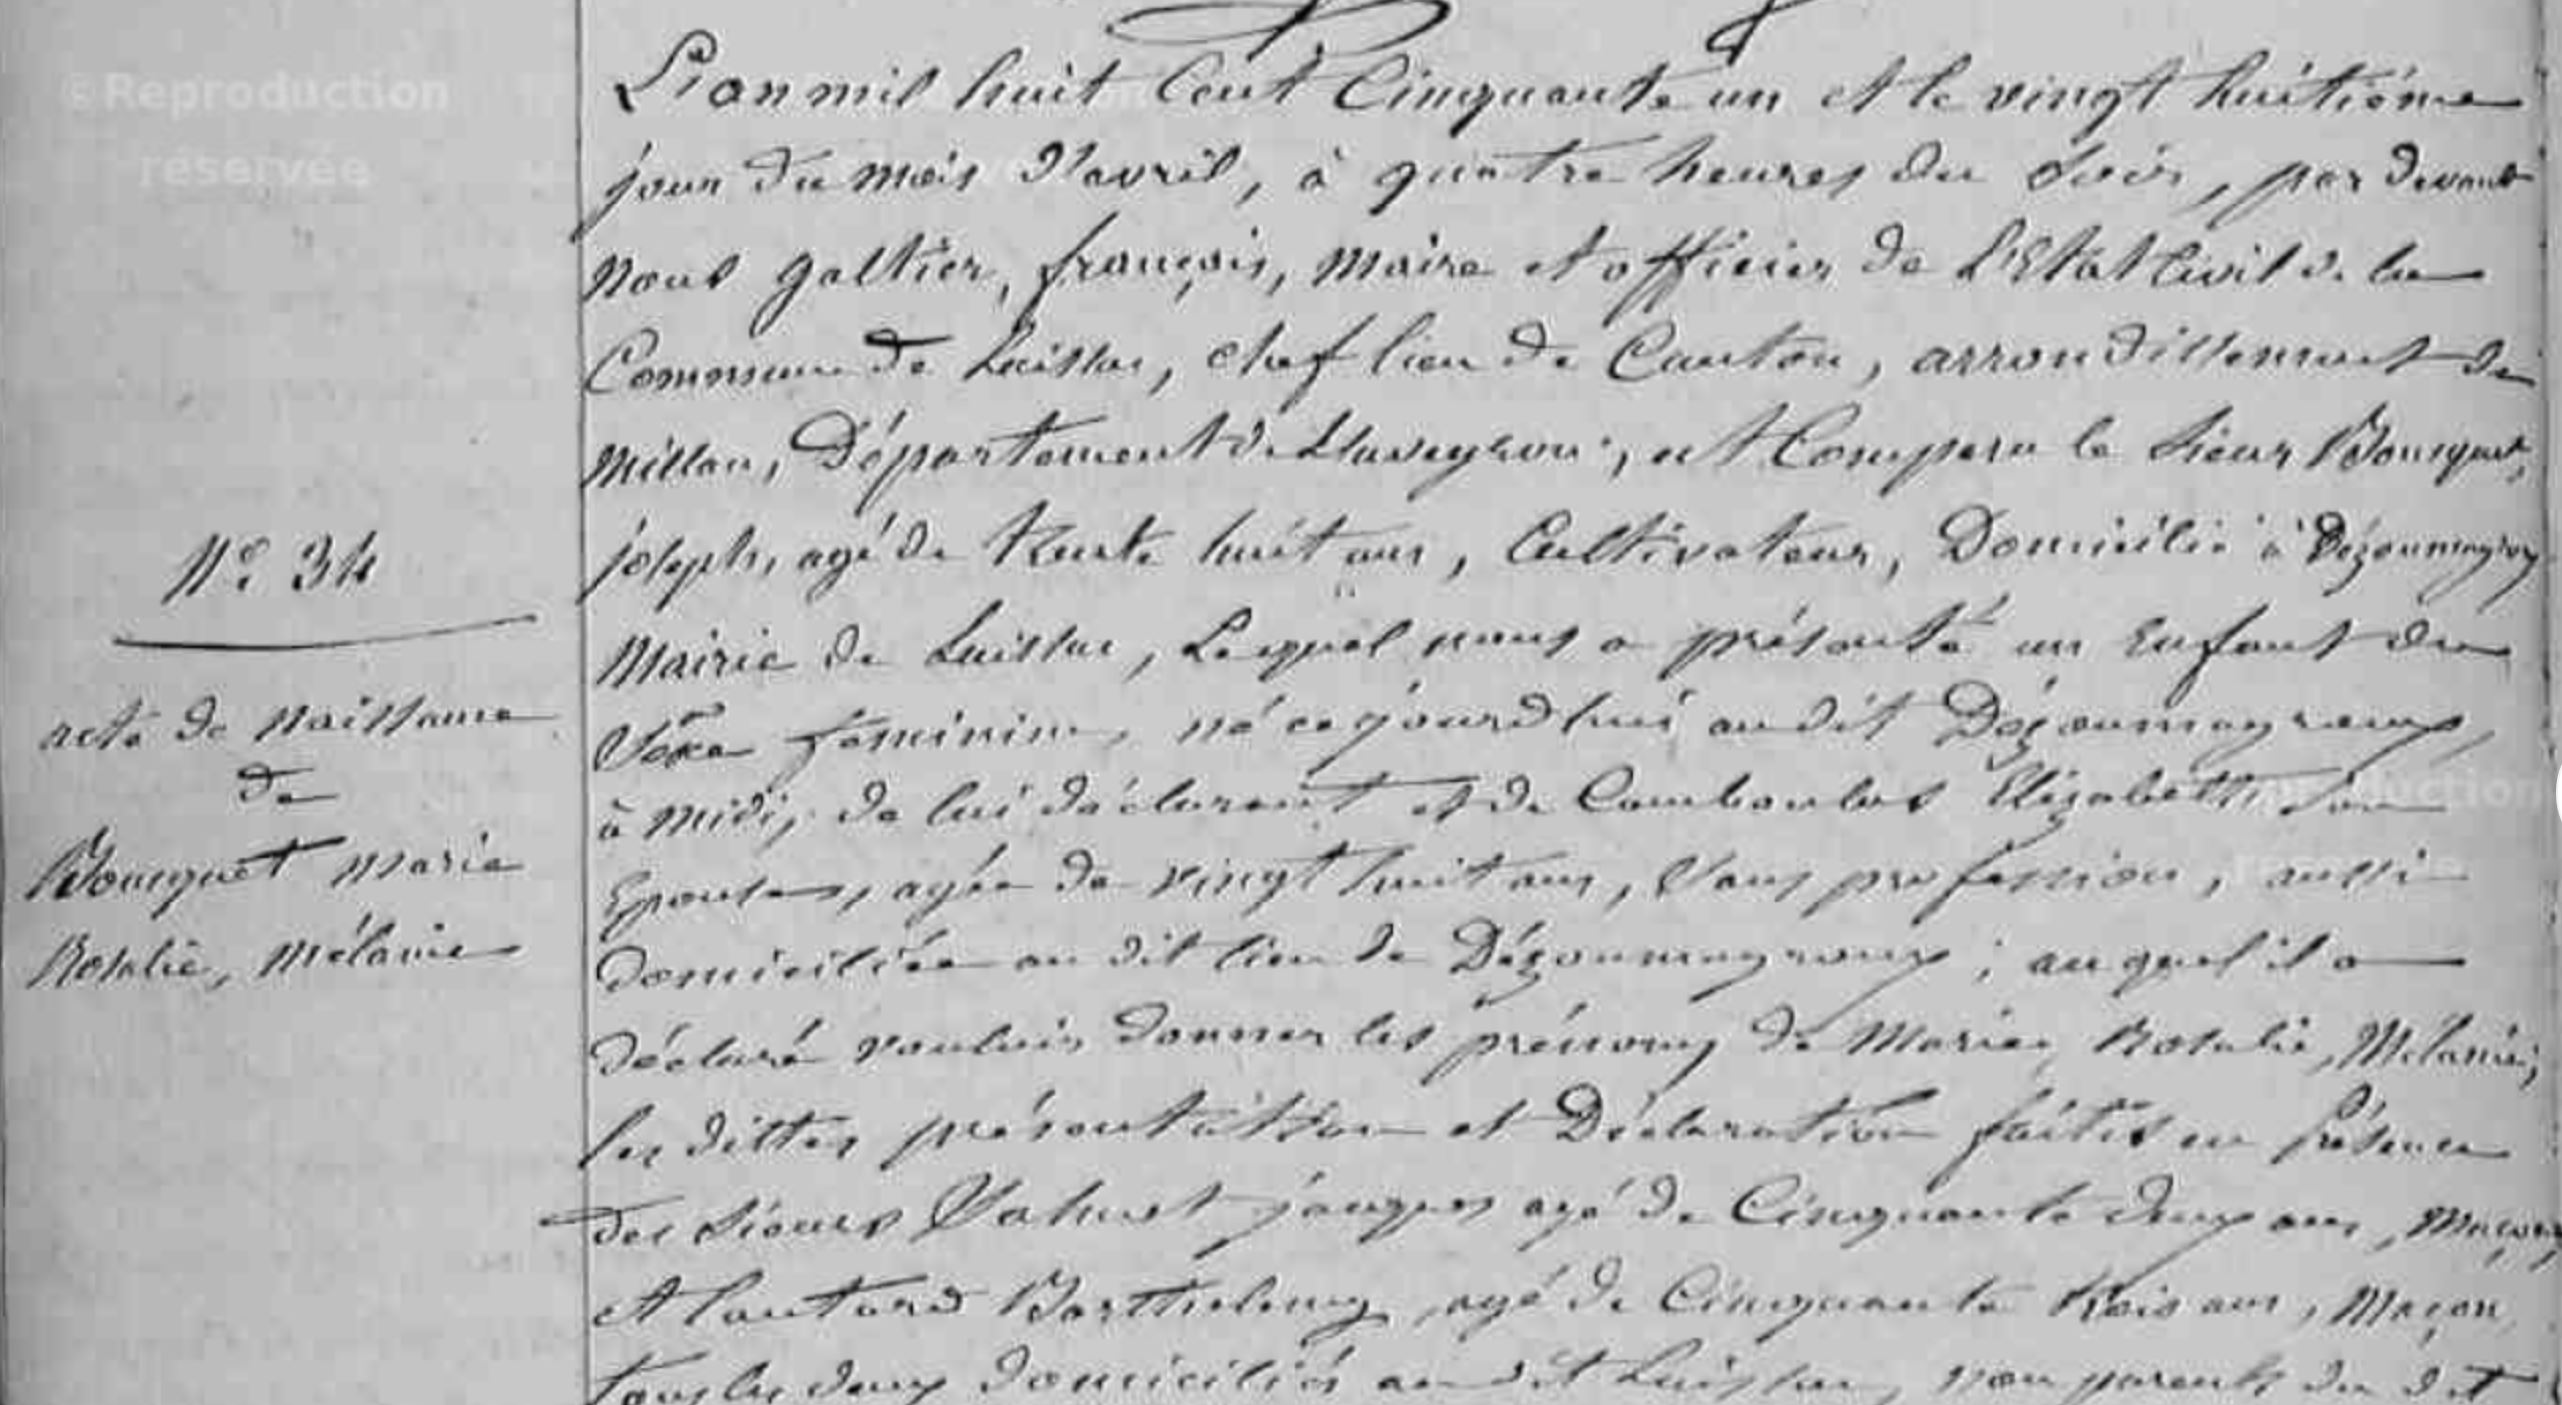 © Reproduction
réservée
N° 34
acte de Naissance
de
Bousquet Marie
Rosalie, Mélanie
L'an mil huit Cent Cinquante un et le vingt huitième
jour du mois d'avril, à quatre heures du Soir, par devant
Nous Galtier, françois, Maire et officier de L'Etat Civil de la
Commune de Laissac, chef lieu de Canton, arrondissement de
Millau, Département de L'aveyron, est Comparu le Sieur Bousquet,
joseph, agé de trente huit ans, Cultivateur, Domicilié à
Mairie de Laissac, Lequel nous a présenté un Enfant du
Sexe féminin, né ce jourd'hui au dit
à midi, de lui déclarant et de Elisabeth son
Epouse, agée de vingt huit ans, Sans profession, aussi
domiciliée au dit lieu de ; auquel il a
déclaré vouloir donner les prénoms de Marie, Rosalie, Mélanie,
les dittes présentation et Déclaration faites en présence
des Sieurs jacques agé de Cinquante deux ans, Maçon,
et Barthelemy agé de Cinquante trois ans, Maçon,
tous les deux domiciliés au dit Laissac, non parents du dit